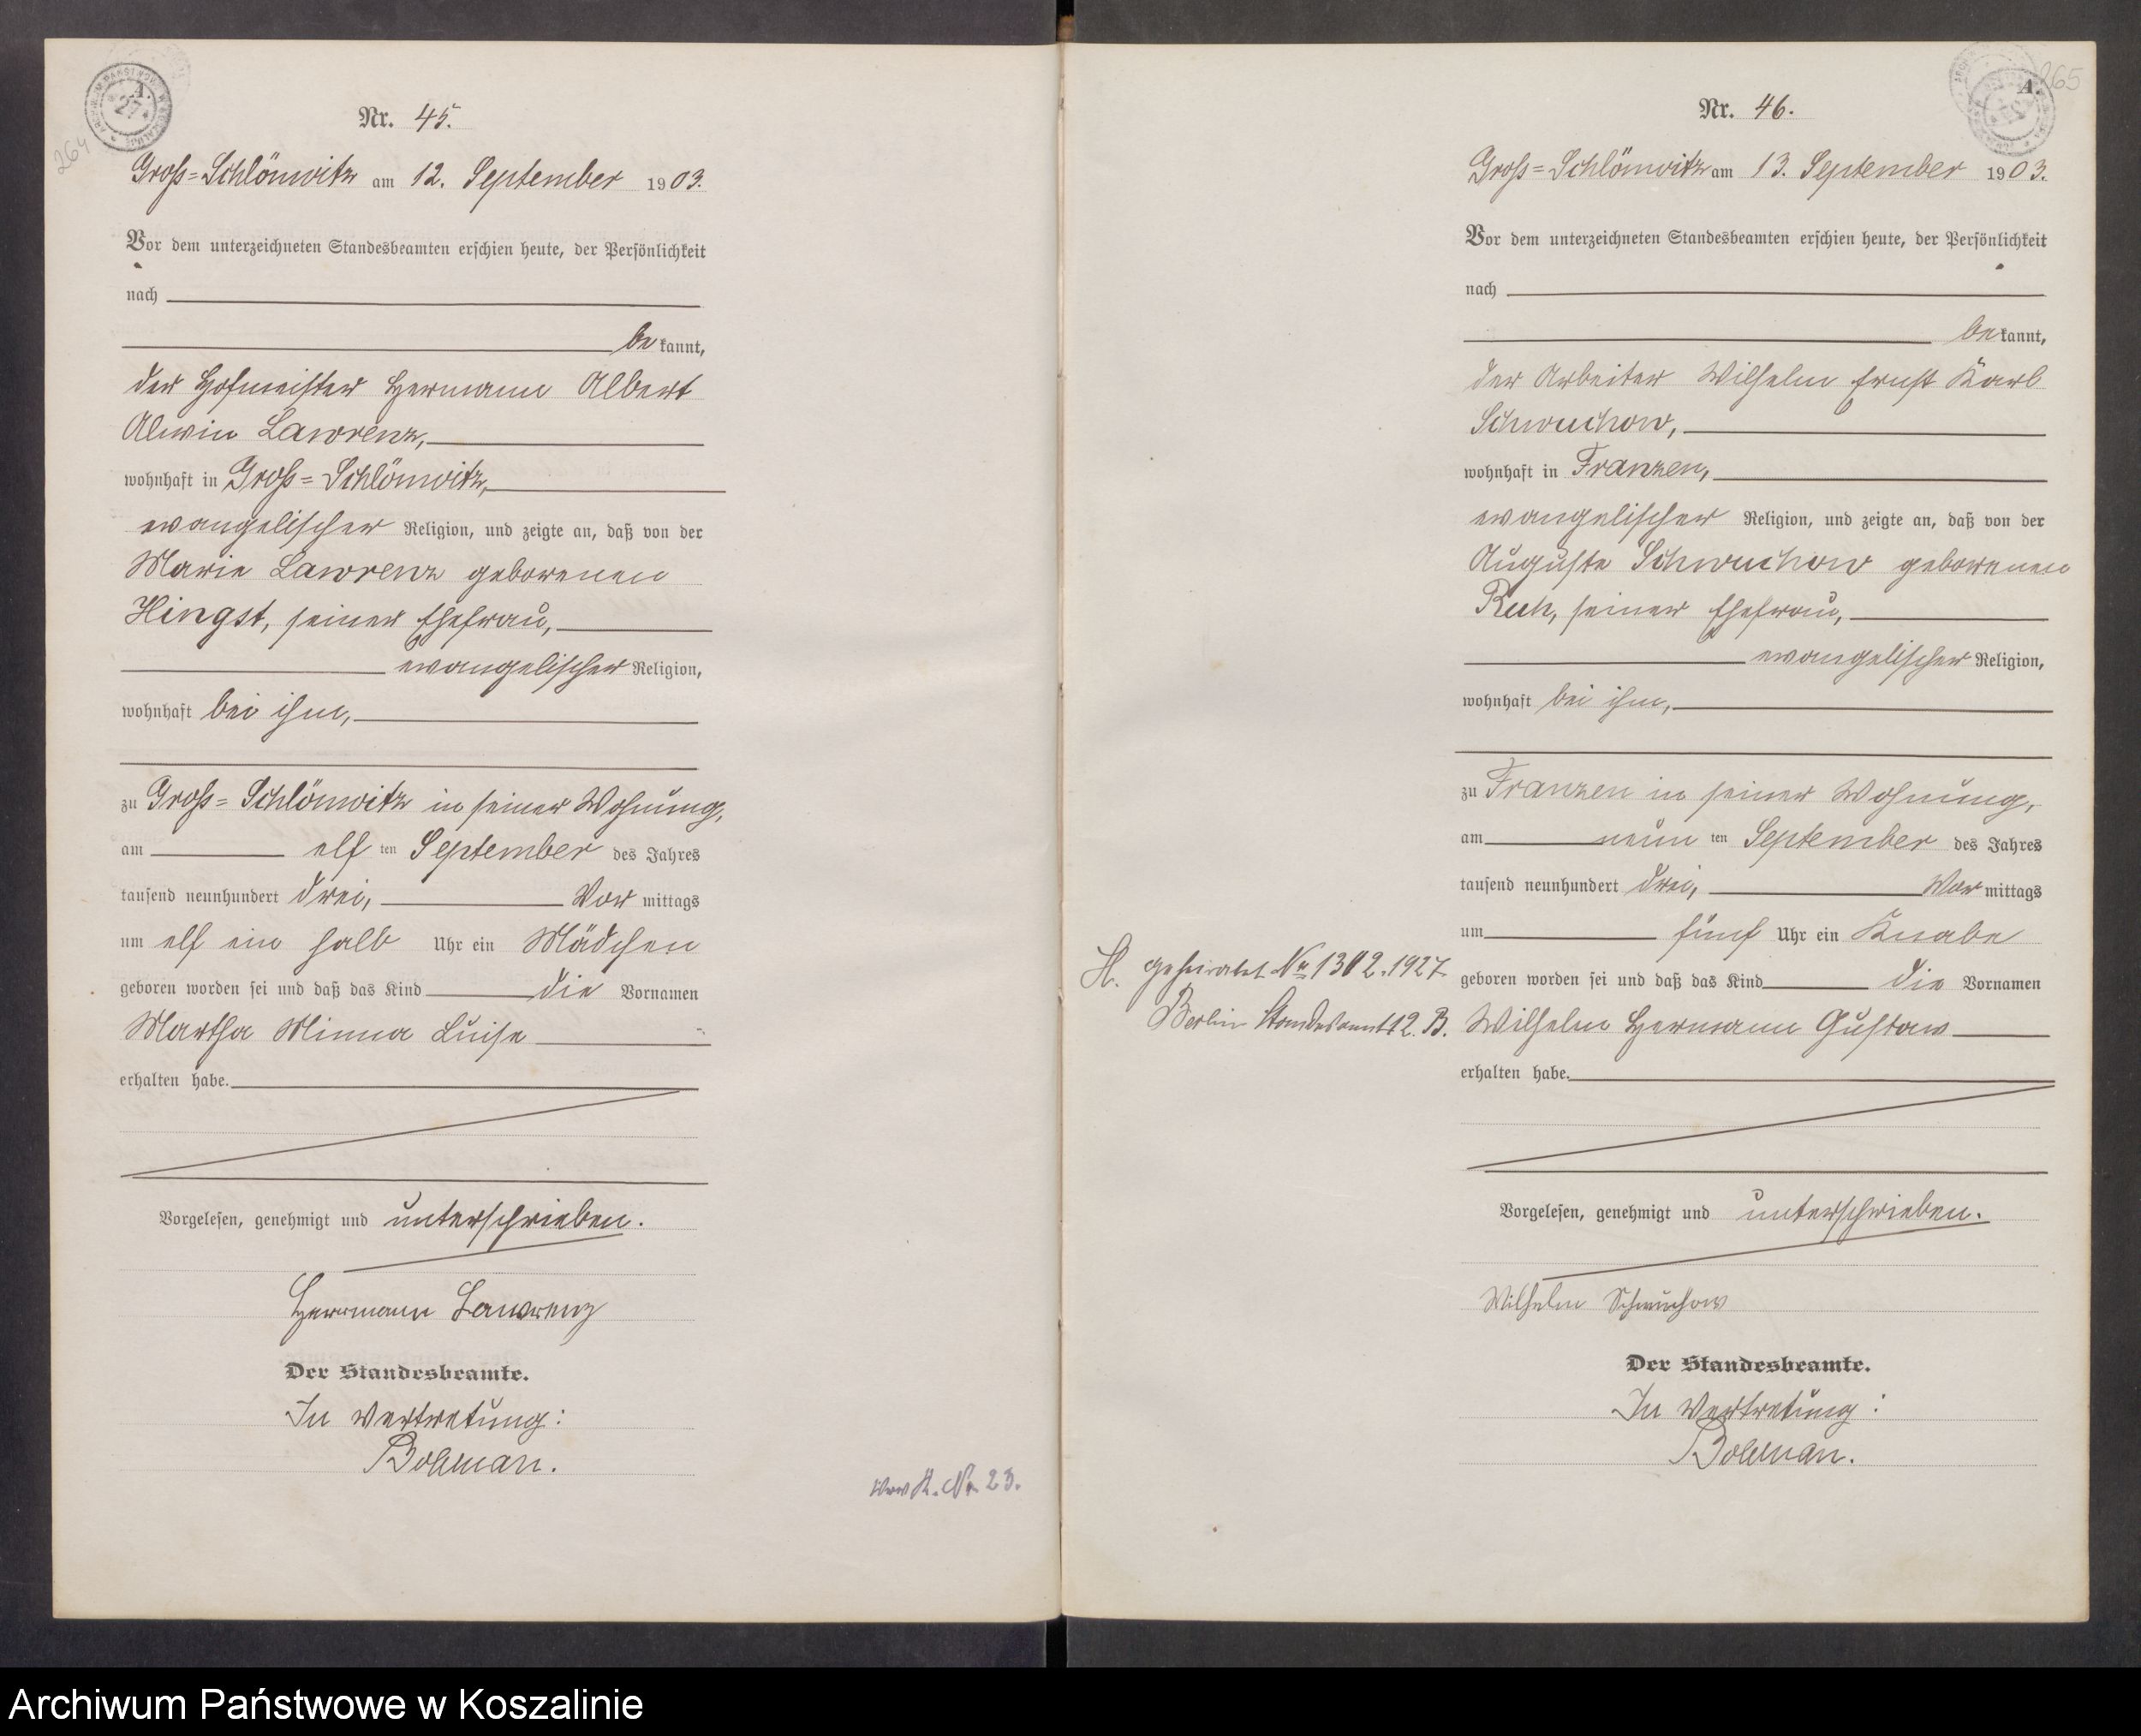 A.
264
Nr. 45.
Gross=Schlönwitz am 12. September 1903.
Vor dem unterzeichneten Standesbeamten erschien heute, der Persönlichkeit
nach
bekannt,
der Hofmeister Hermann Albert
Alwin Lawrenz,
wohnhaft in Gross=Schlönwitz,
evangelischer Religion, und zeigte an, daß von der
Marie Lawrenz geborenen
Hingst, seiner Ehefrau,
evangelischer Religion,
wohnhaft bei ihm,
zu Gross=Schlönwitz in seiner Wohnung,
am elf ten September des Jahres
tausend neunhundert drei, Vor mittags
um elf ein halb Uhr ein Mädchen
geboren worden sei und daß das Kind die Vornamen
Martha Minna Luise
erhalten habe.
Vorgelesen, genehmigt und unterschrieben.
Herrmann Lawrenz
Der Standesbeamte.
In Vertretung:
Bohlman.
K. Nr. 23.
A.
265
Nr. 46.
Gross=Schlönwitz am 13. September 1903.
Vor dem unterzeichneten Standesbeamten erschien heute, der Persönlichkeit
nach
bekannt,
der Arbeiter Wilhelm Ernst Karl
Schwuchow,
wohnhaft in Franzen,
evangelischer Religion, und zeigte an, daß von der
Auguste Schwuchow geborenen
Ruh, seiner Ehefrau,
evangelischer Religion,
wohnhaft bei ihm,
zu Franzen in seiner Wohnung,
am neun ten September des Jahres
tausend neunhundert drei, Vor mittags
um fünf Uhr ein Knabe
geboren worden sei und daß das Kind die Vornamen
Wilhelm Hermann Gustav
erhalten habe.
H. geheiratet Nr 1302.1927
Berlin Standesamt 12. B.
Vorgelesen, genehmigt und unterschrieben.
Wilhelm Schwuchow
Der Standesbeamte.
In Vertretung:
Bohlman.
Archiwum Państwowe w Koszalinie